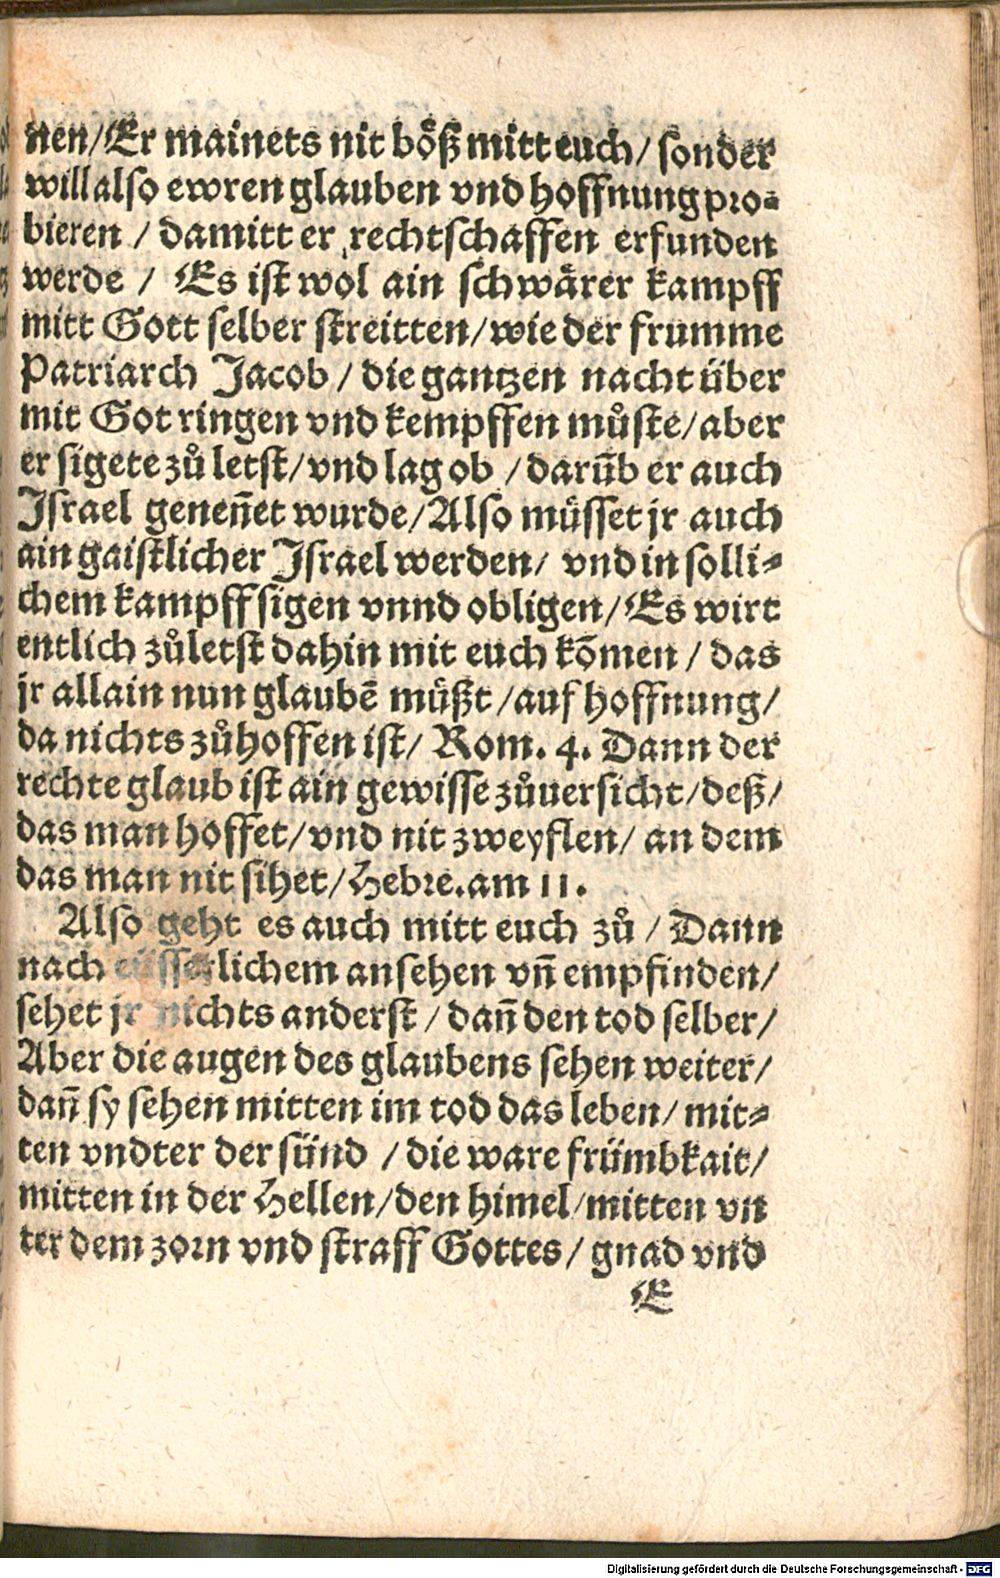 nen/Er mainets nit böß mitt euch/ sonder
will also ewren glauben vnd hoffnung pro⸗
bieren / damitt er rechtschaffen erfunden
werde / Es ist wol ain schwärer kampff
mitt Gott selber streitten/wie der frumme
Patriarch Jacob / die gantzen nacht über
mit Got ringen vnd kempffen můste/aber
er sigete zů letst/vnd lag ob / darūb er auch
Israel geneñet wurde/Also müsset jr auch
ain gaistlicher Israel werden/ vnd in solli⸗
chem kampff sigen vnnd obligen/Es wirt
entlich zůletst dahin mit euch kōmen / das
jr allain nun glaubē müßt /auf hoffnung/
da nichts zůhoffen ist/ Rom. 4. Dann der
rechte glaub ist ain gewisse zůuersicht/deß/
das man hoffet/vnd nit zweyflen/ an dem
das man nit sihet/Hebre.am 11.
Also geht es auch mitt euch zů / Dann
nach eüsserlichem ansehen vñ empfinden/
sehet jr nichts anderst / dañ den tod selber/
Aber die augen des glaubens sehen weiter/
dañ sy sehen mitten im tod das leben/ mit⸗
ten vndter der sünd / die ware frümbkait/
mitten in der Hellen/den himel/mitten vn
ter dem zorn vnd straff Gottes/ gnad vnd
E
Digitalisierung gefördert durch die Deutsche Forschungsgemeinschaft - DFG